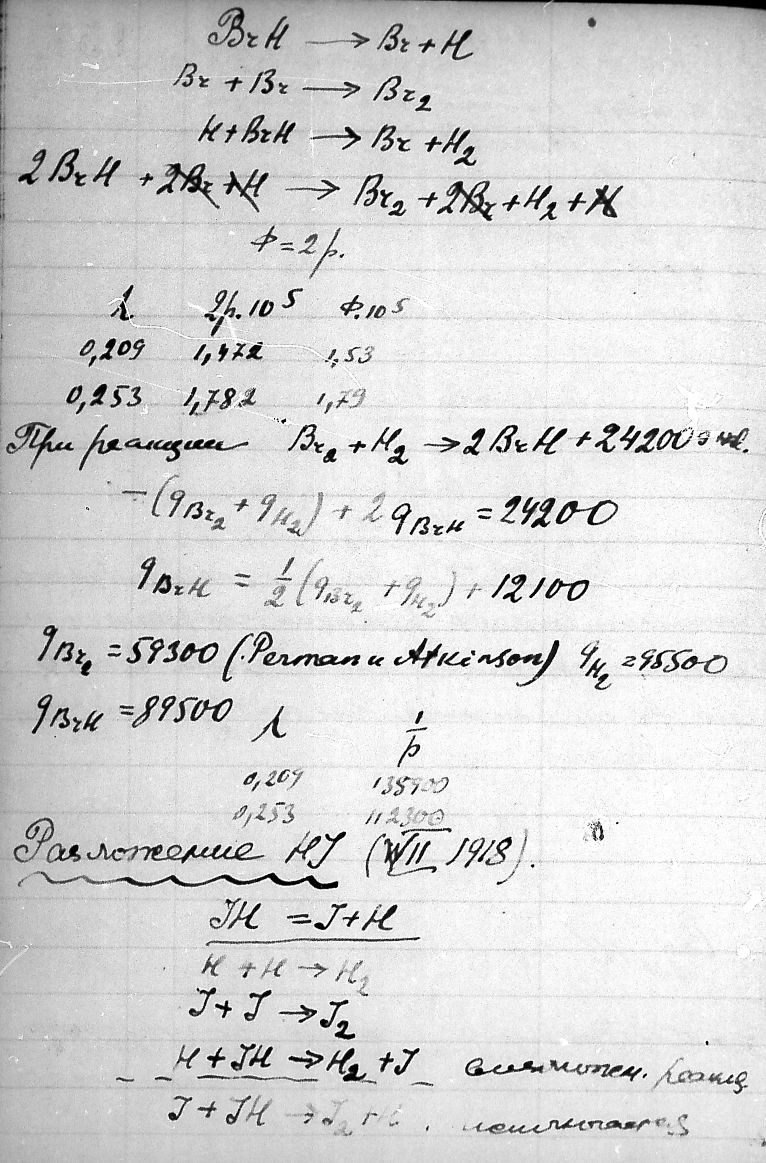 BrH → Br + H
Br + Br → Br₂
H + BrH → Br + H₂
2BrH + 2Br + H → Br₂ + 2Br + H₂ + H
Φ = 2p.
λ 2p.10⁵ Φ.10⁵
0,209 1,472 1,53
0,253 1,782 1,79
При реакции Br₂ + H₂ → 2BrH + 24200
−(qBr₂ + qH₂) + 2qBrH = 24200
qBrH = 1/2 (qBr₂ + qH₂) + 12100
qBr₂ = 59300 (Perman и Atkinson) qH₂ = 95500
qBrH = 89500 λ 1/p
0,209 135900
0,253 112300
Разложение HJ (VII 1918).
JH = J + H
H + H → H₂
J + J → J₂
H + JH → H₂ + J реакц.
J + JH → J₂ + H.